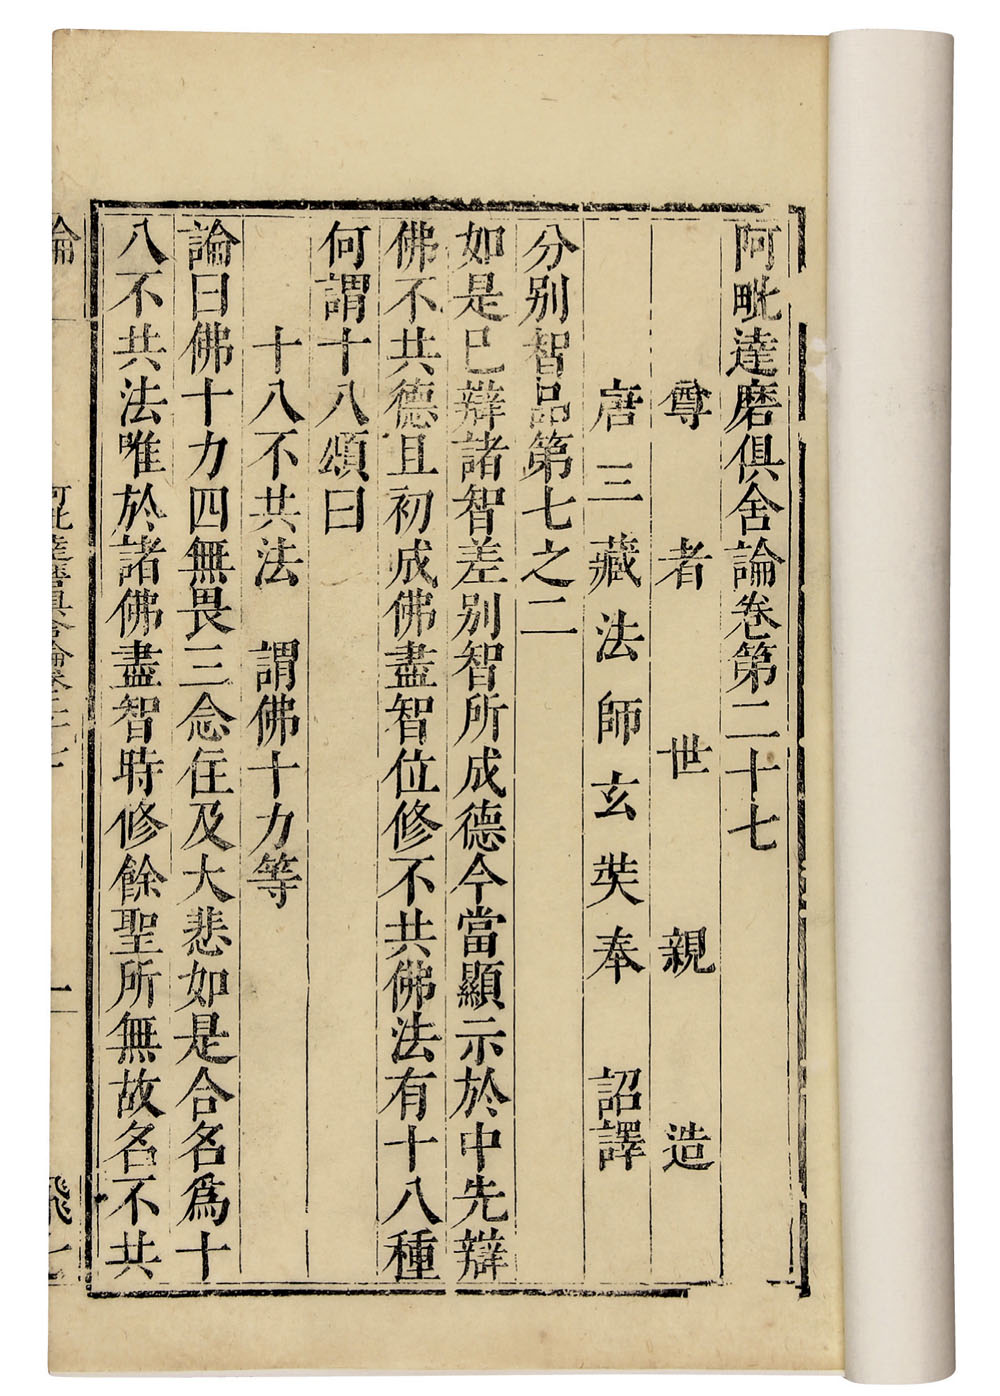 阿毗達磨俱舍論卷第二十七
尊者世親造
唐三藏法師玄奘奉 詔譯
分别智品第七之二
如是已辯諸智差别智所成德今當顯示於中先辯
佛不共德且初成佛盡智位修不共佛法有十八種
何謂十八頌曰
十八不共法 謂佛十力等
論曰佛十力四無畏三念住及大悲如是合名爲十
八不共法唯於諸佛盡智時修餘聖所無故名不共
論